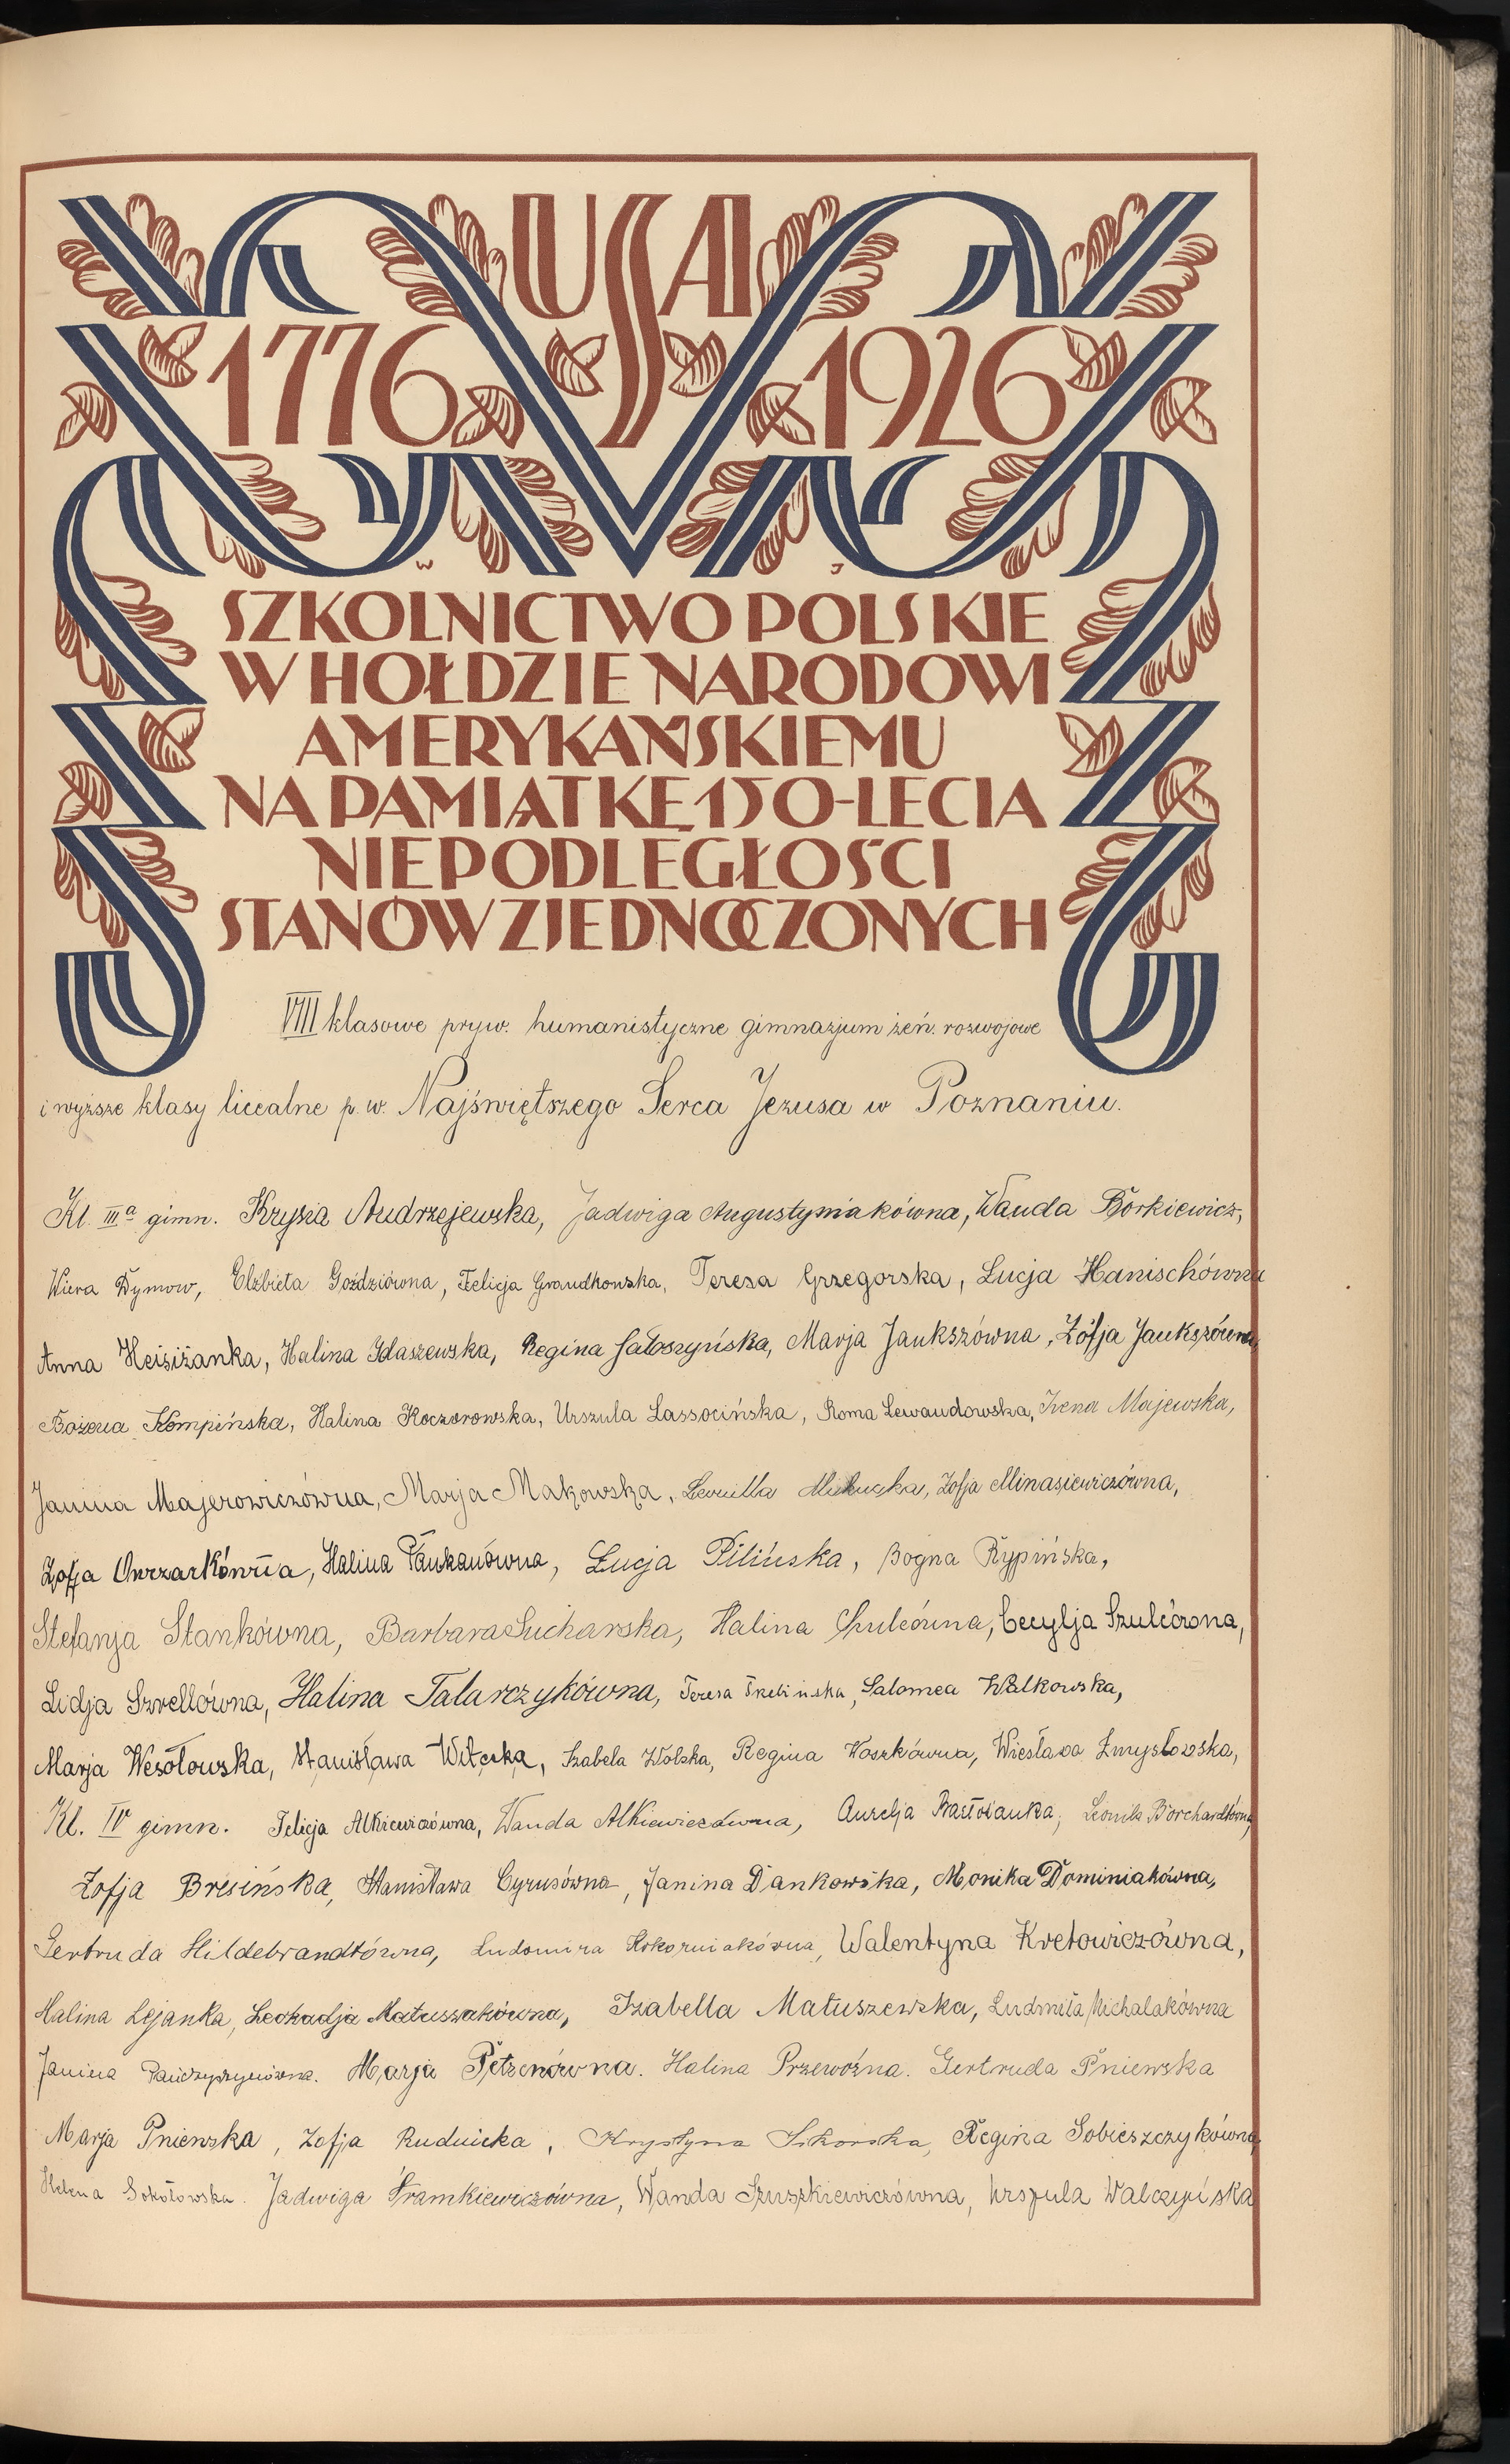 USA
1776 1926
W J
SZKOLNICTWO POLSKIE
W HOŁDZIE NARODOWI
AMERYKAŃSKIEMU
NA PAMIĄTKĘ 150-LECIA
NIEPODLEGŁOŚCI
STANÓW ZJEDNOCZONYCH
VIII klasowe pryw. humanistyczne gimnazjum żeń. rozwojowe
i wyższe klasy licealne p. w. Najświętszego Serca Jezusa w Poznaniu.
Kl. IIIa gimn. Krysia Andrzejewska, Jadwiga Augustyniakówna, Wanda Borkiewicz,
Wiera Dymow, Elżbieta Goździówna, Felicja Grandkowska, Teresa Grzegorska, Łucja Hanischówna
Anna Heisiżanka, Halina Idaszewska, Regina Jałoszyńska, Marja Jankszówna, Zofja Jankszówna,
Bożena Kempińska, Halina Koczorowska, Urszula Lassocińska, Roma Lewandowska, Irena Majewska,
Janina Majerowiczówna, Marja Makowska, Zofja Minasiewiczówna,
Zofja Owczarkówna, Halina Pankanówna, Łucja Pilińska, Bogna Rypińska,
Stefanja Stankówna, Barbara Sucharska, Halina Szulcówna, Cecylja Szulcówna,
Lidja Szrellówna, Halina Tatarczykówna, Teresa Trebińska, Salomea Walkowska,
Marja Wesołowska, Stanisława Witecka, Izabela Wolska, Regina Woszkówna, Wiesława Zmysłowska,
Kl. IV gimn. Felicja Alkiewiczówna, Wanda Alkiewiczówna, Aurelja Bartożanka, Leonila Borchardtówna,
Zofja Bresińska, Stanisława Cyrusówna, Janina Dankowska, Monika Dominiakówna,
Gertruda Hildebrandtówna, Ludomira Kokorniakówna, Walentyna Kretowiczówna,
Halina Lejanka, Leokadja Matuszakówna, Izabella Matuszewska, Ludmiła Michalakówna
Janina Marja Petzenówna. Halina Przewoźna. Gertruda Pniewska
Marja Pniewska, Zofja Rudnicka, Krystyna Sikorska, Regina Sobieszczykówna,
Helena Sokołowska. Jadwiga Szramkiewiczówna, Wanda Szuszkiewiczówna, Urszula Walczyńska